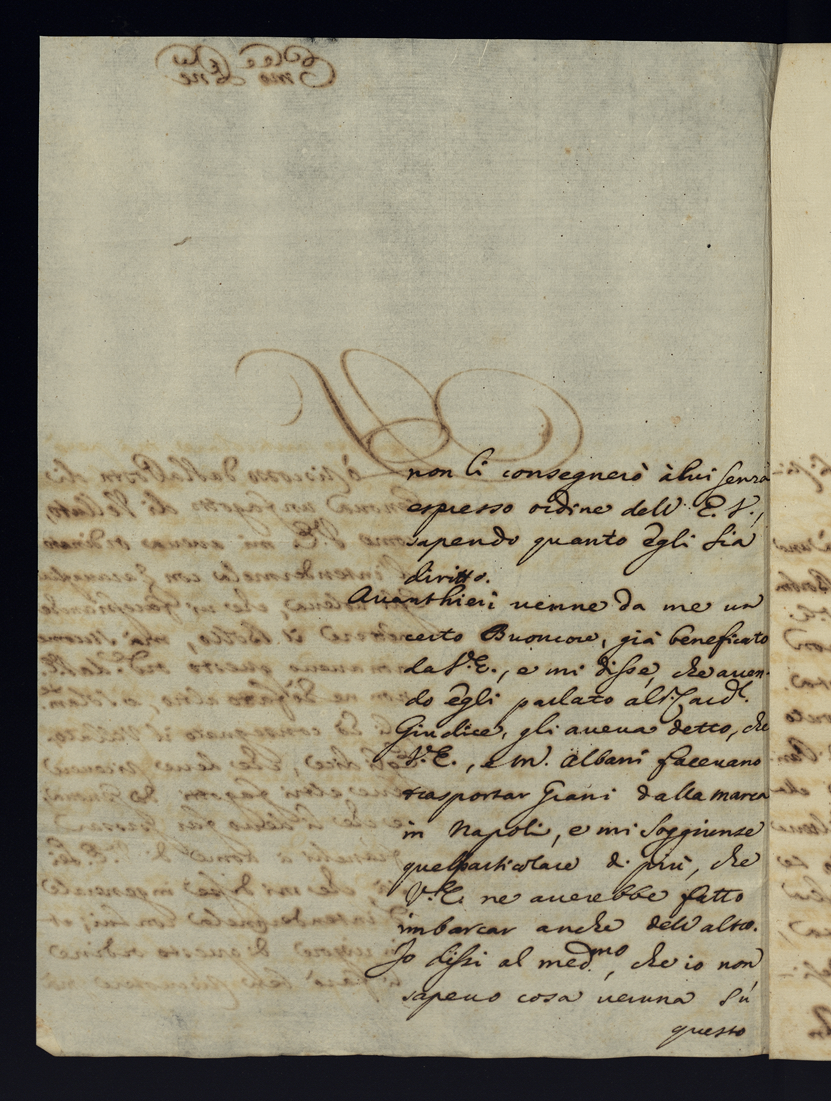 non li consegnerò à lui senza
espresso ordine dell' E. V.,
sapendo quanto egli sia
diritto.
Avanthieri venne da me un
certo Buoncore, già beneficato
da V. E., e mi disse, che aven-
do egli parlato al Sr. Cardl.
Giudice, gli aveva detto, che
V. E., e M. Albani facevano
trasportar Grani dalla marca
in Napoli, e mi soggiunse
quel particolare di più, che
V. E. ne averebbe fatto
imbarcar anche dell' altro.
Io dissi al medmo, che io non
sapevo cosa veruna sù
questo